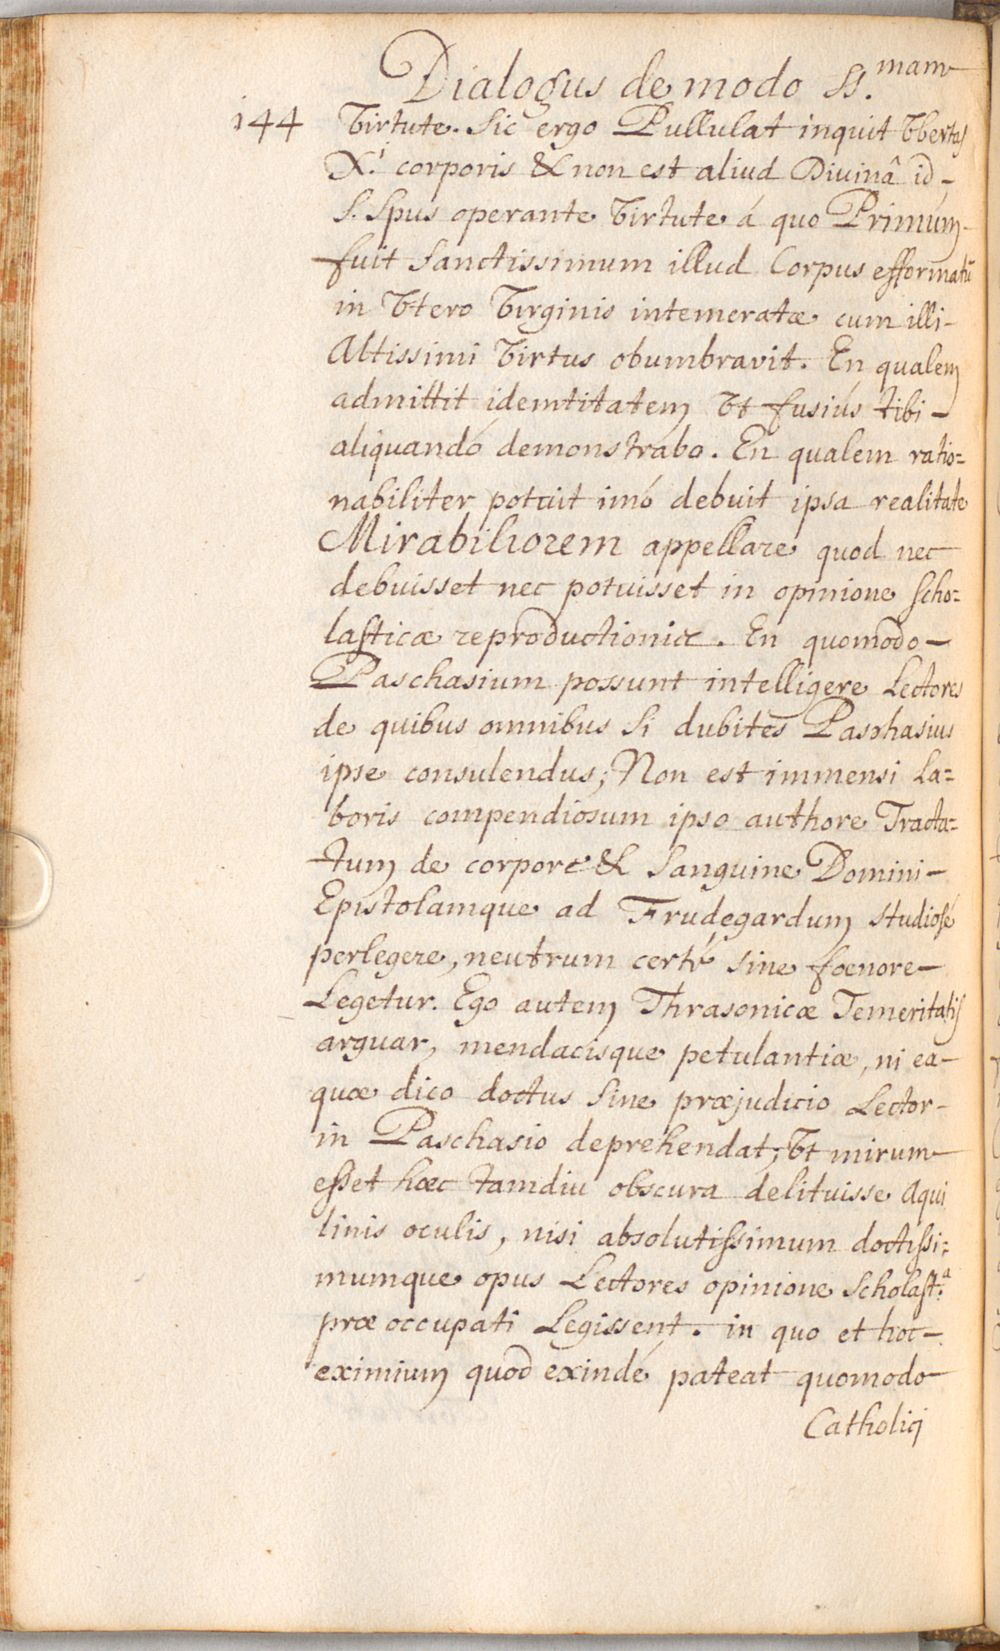 Dialogus de modo SS.mam
144 Virtute. Sic ergo Pullulat inquit Vbertas
Xi. corporis & non est aliud Divinâ id-
S. Spus operante Virtute á quo Primúm-
fuit Sanctissimum illud Corpus efformatū
in Vtero Virginis intemeratæ cum illi-
Altissimi Virtus obumbravit. En qualem
admittit idemtitatem Vt fusiús tibi-
aliquandó demonstrabo. En qualem ratio=
nabiliter potuit imó debuit ipsa realitate
Mirabiliorem appellare quod nec
debuisset nec potuisset in opinione Scho=
lasticæ reproductionis. En quomodo-
Paschasium possunt intelligere Lectores
de quibus omnibus Si dubites Pashasius
ipse consulendus; Non est immensi La=
boris compendiosum ipso authore Tracta=
tum de corpore & Sanguine Domini-
Epistolamque ad Frudegardum studiosé
perlegere, neutrum certé sine foenore-
Legetur. Ego autem Thrasonicæ Temeritatis
arguar, mendacisque petulantiæ, ni ea-
quæ dico doctus Sine præjudicio Lector-
in Paschasio deprehendat; Vt mirum-
esset hæc tamdiu obscura delituisse Aqui
linis oculis, nisi absolutissimum doctissi=
mumque opus Lectores opinione Scholast.a
præoccupati Legissent. in quo et hoc-
eximium quod exindé pateat quomodo-
Catholici